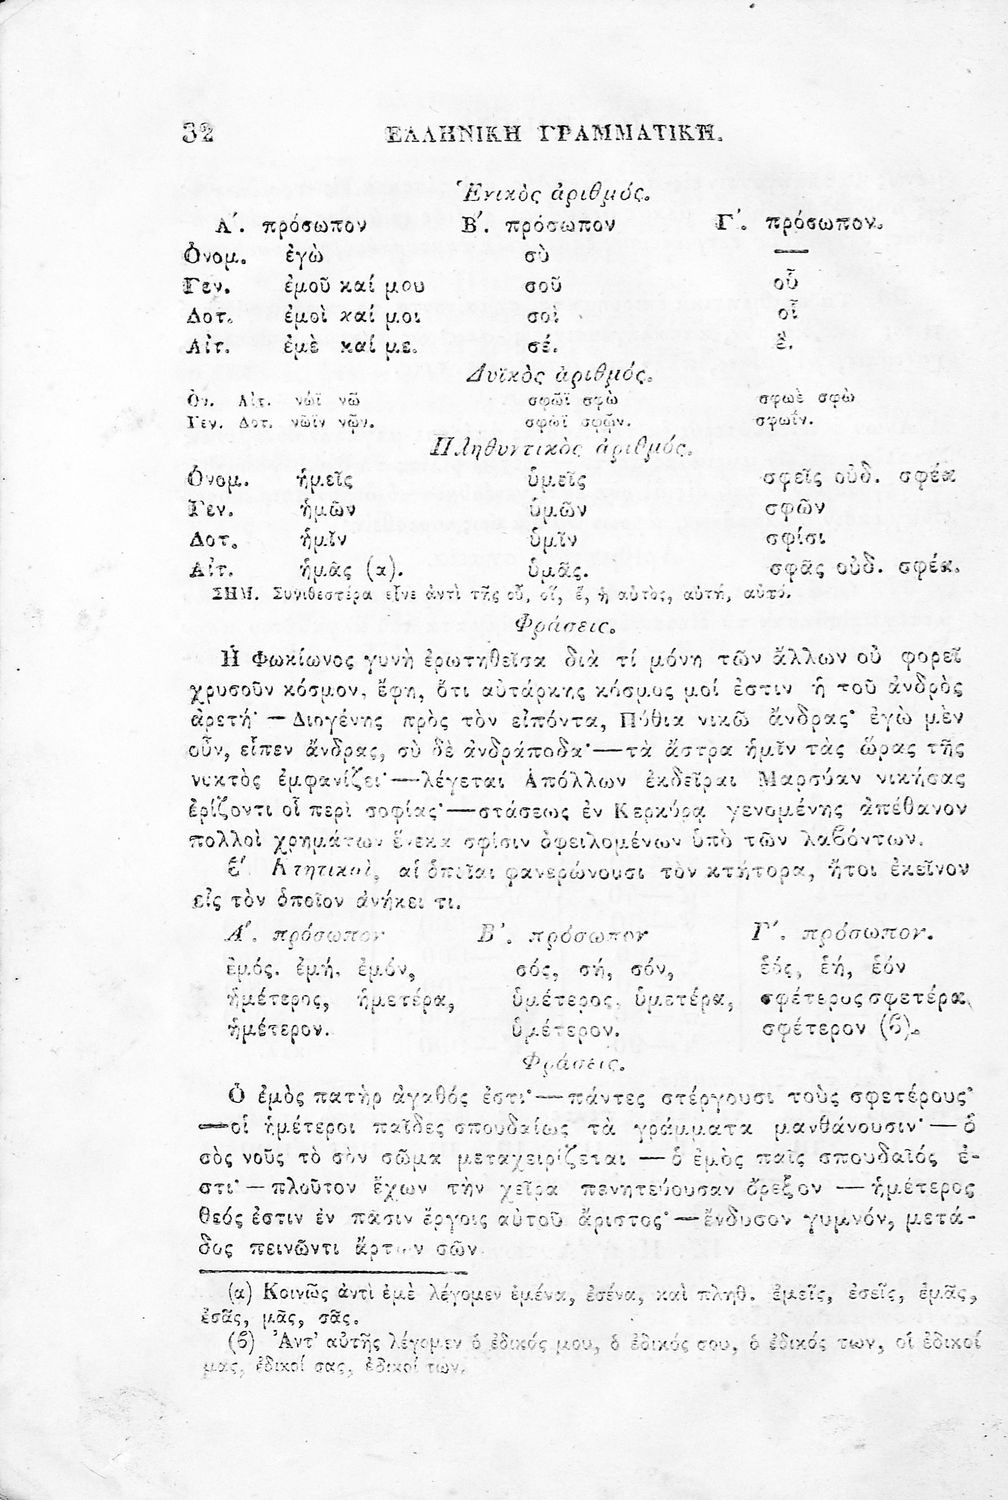 32 ΕΛΛΗΝΙΚΗ ΓΡΑΜΜΑΤΙΚΗ.
Ἑνικὸς ἀριθμός.
Α΄. πρόσωπον Β΄. πρόσωπον Γ΄. πρόσωπον.
Ὀνομ. ἐγὼ σὺ —
Γεν. ἐμοῦ καί μου σοῦ οὗ
Δοτ. ἐμοὶ καί μοι σοὶ οἷ
Αἰτ. ἐμὲ καί με. σέ. ἕ.
Δυϊκὸς ἀριθμός.
Ὀν. Αἰτ. νῶϊ νῶ σφῶϊ σφὼ σφωὲ σφὼ
Γεν. Δοτ. νῶϊν νῷν. σφῶϊ σφῷν. σφωΐν.
Πληθυντικὸς ἀριθμός.
Ὀνομ. ἡμεῖς ὑμεῖς σφεῖς οὐδ. σφέα
Γεν. ἡμῶν ὑμῶν σφῶν
Δοτ. ἡμῖν ὑμῖν σφίσι
Αἰτ. ἡμᾶς (α). ὑμᾶς. σφᾶς οὐδ. σφέα.
ΣΗΜ. Συνιθεστέρα εἶνε ἀντὶ τῆς οὗ, οἷ, ἕ, ἡ αὐτὸς, αὐτή, αὐτό.
Φράσεις.
Ἡ Φωκίωνος γυνὴ ἐρωτηθεῖσα διὰ τί μόνη τῶν ἄλλων οὐ φορεῖ
χρυσοῦν κόσμον, ἔφη, ὅτι αὐτάρκης κόσμος μοί ἐστιν ἡ τοῦ ἀνδρὸς
ἀρετή· — Διογένης πρὸς τὸν εἰπόντα, Πύθια νικῶ ἄνδρας· ἐγὼ μὲν
οὖν, εἶπεν ἄνδρας, σὺ δὲ ἀνδράποδα· — τὰ ἄστρα ἡμῖν τὰς ὥρας τῆς
νυκτὸς ἐμφανίζει· — λέγεται Ἀπόλλων ἐκδεῖραι Μαρσύαν νικήσας
ἐρίζοντι οἷ περὶ σοφίας· — στάσεως ἐν Κερκύρᾳ γενομένης ἀπέθανον
πολλοὶ χρημάτων ἕνεκα σφίσιν ὀφειλομένων ὑπὸ τῶν λαβόντων.
ϐ΄. Κτητικαὶ, αἱ ὁποῖαι φανερώνουσι τὸν κτήτορα, ἤτοι ἐκεῖνον
εἰς τὸν ὁποῖον ἀνήκει τι.
Α΄. πρόσωπον Β΄. πρόσωπον Γ΄. πρόσωπον.
ἐμός. ἐμή. ἐμόν, σός, σή, σόν, ἑός, ἑή, ἑόν
ἡμέτερος, ἡμετέρα, ὑμέτερος, ὑμετέρα, σφέτερος σφετέρα,
ἡμέτερον. ὑμέτερον. σφέτερον (ϐ).
Φράσεις.
Ὁ ἐμὸς πατὴρ ἀγαθός ἐστι· — πάντες στέργουσι τοὺς σφετέρους·
— οἱ ἡμέτεροι παῖδες σπουδαίως τὰ γράμματα μανθάνουσιν· — ὁ
σὸς νοῦς τὸ σὸν σῶμα μεταχειρίζεται — ὁ ἐμὸς παῖς σπουδαῖός ἐ-
στι· — πλοῦτον ἔχων τὴν χεῖρα πενητεύουσαν ὄρεξον — ἡμέτερος
θεός ἐστιν ἐν πᾶσιν ἔργοις αὐτοῦ ἄριστος· — ἔνδυσον γυμνόν, μετά-
δος πεινῶντι ἄρτων σῶν
(α) Κοινῶς ἀντὶ ἐμὲ λέγομεν ἐμένα, ἐσένα, καὶ πληθ. ἐμεῖς, ἐσεῖς, ἐμᾶς,
ἐσᾶς, μᾶς, σᾶς.
(ϐ) Ἀντ' αὐτῆς λέγομεν ὁ ἐδικός μου, ὁ ἐδικός σου, ὁ ἐδικός των, οἱ ἐδικοί
μας, ἐδικοί σας, ἐδικοί των.